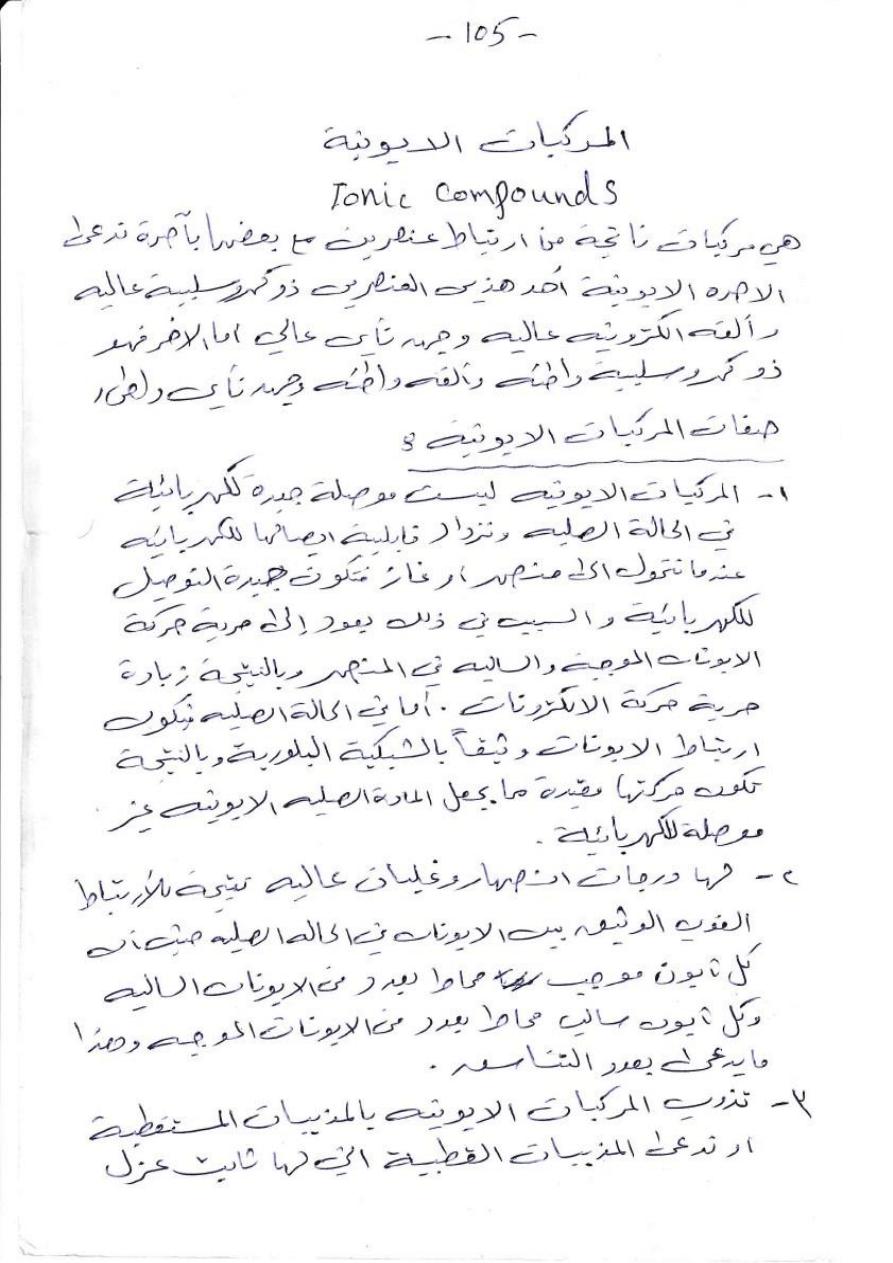 - 105 -
المركبات الايونية
Ionic Compounds
هي مركبات ناتجة من ارتباط عنصرين مع بعضهما بآصرة تدعى
الاصره الايونية أحد هذين العنصرين ذو كهروسلبية عاليه
وألفه الكترونيه عاليه وجهد تأين عالي اما الاخر فهو
ذو كهروسلبية واطئه وألفه واطئه وجهد تأين واطىء
صفات المركبات الايونيه :
١- المركبات الايونيه ليست موصلة جيدة للكهربائية
في الحالة الصلبه وتزداد قابلية ايصالها للكهربائيه
عندما تتحول الى منصهر او غاز فتكون جيدة التوصيل
للكهربائية والسبب في ذلك يعود إلى حرية حركة
الايونات الموجبة والسالبه في المنصهر وبالنتيجة زيادة
حرية حركة الالكترونات . أما في الحالة الصلبه فيكون
ارتباط الايونات وثيقاً بالشبكية البلورية وبالنتيجة
تكون حركتها مقيدة مما يجعل المادة الصلبه الايونيه غير
موصلة للكهربائية .
٢- لها درجات انصهار وغليان عاليه نتيجة للأرتباط
القوي الوثيق بين الايونات في الحاله الصلبه حيث ان
كل أيون موجب محاط بعدد من الايونات السالبه
وكل أيون سالب محاط بعدد من الايونات الموجبه وهذا
مايدعى بعدد التناسق .
٣- تذوب المركبات الايونيه بالمذيبات المستقطبة
او تدعى المذيبات القطبية التي لها ثابت عزل